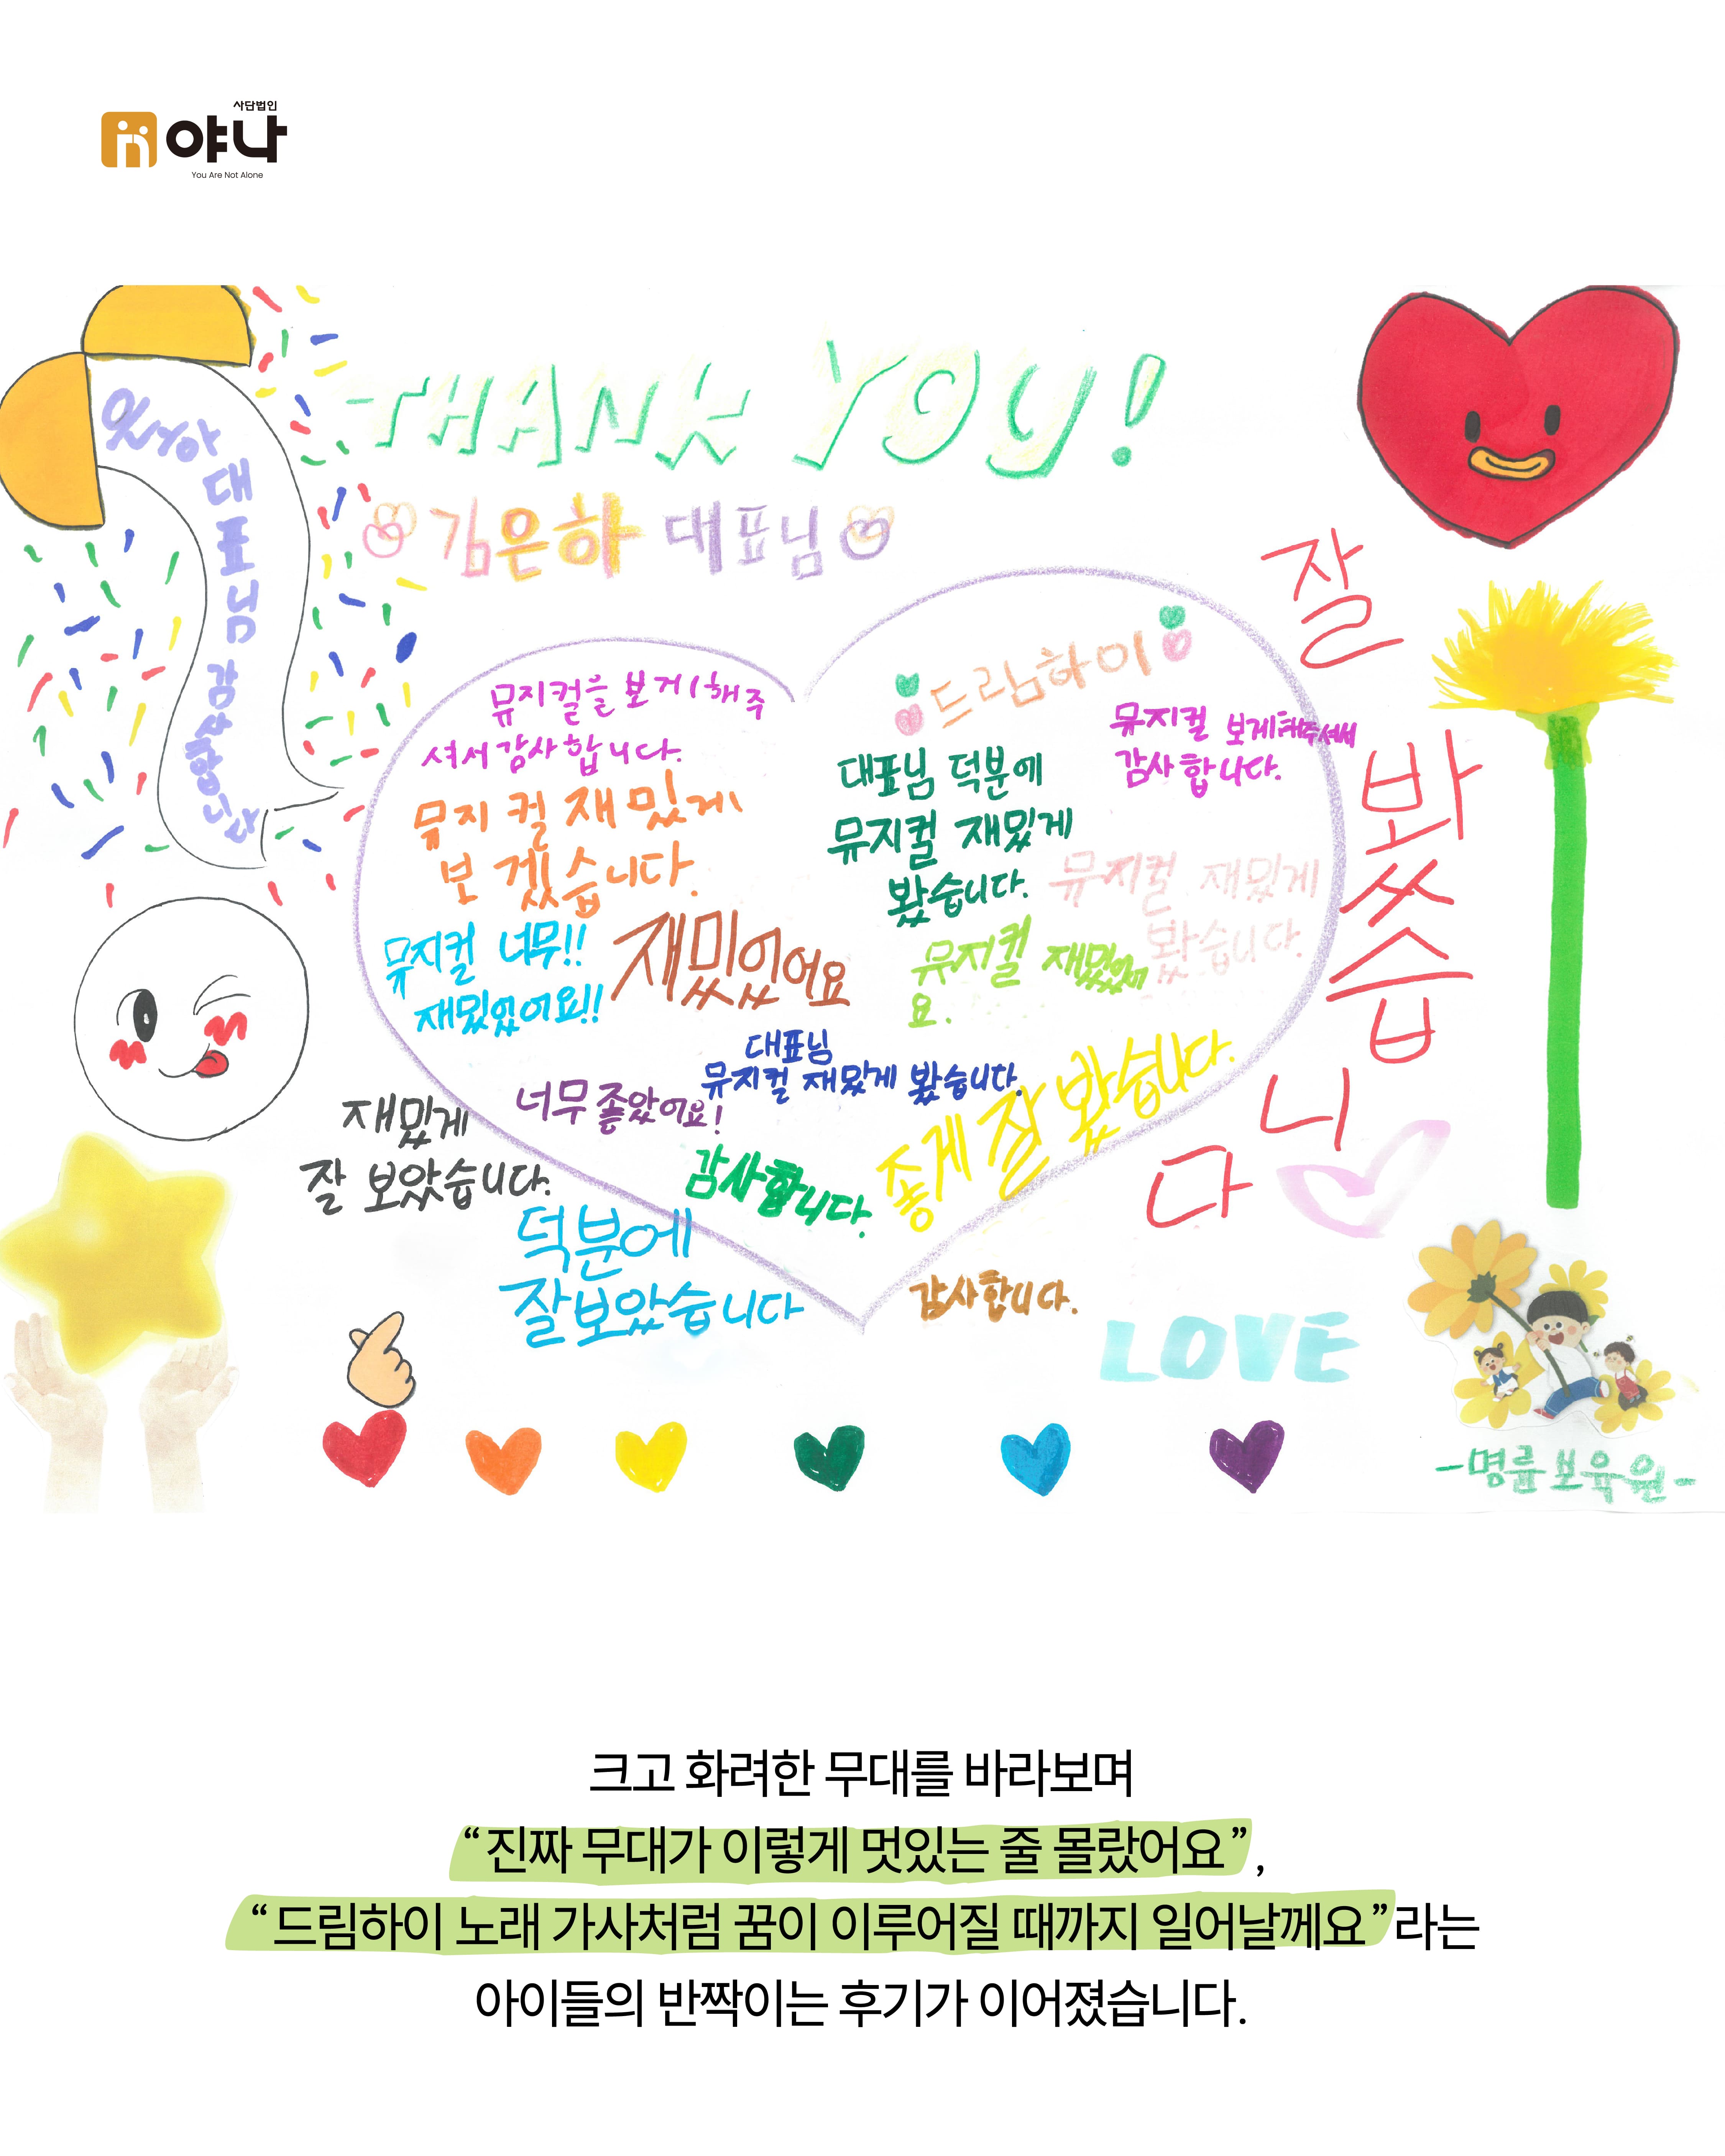 사단법인
야나
You Are Not Alone
THANK YOU!
김은하 대표님
은하
대
표
님
감
사
합
니
다
드림하이
뮤지컬을 보게해주
셔서 감사합니다.
뮤지컬 보게해주셔서
감사합니다.
대표님 덕분에
뮤지컬 재밌게
봤습니다.
뮤지컬 재밌게
보겠습니다.
뮤지컬 재밌게
봤습니다.
뮤지컬 너무!!
재밌었어요!!
재밌었어요
뮤지컬 재밌었어
요.
대표님
뮤지컬 재밌게 봤습니다.
너무 좋았어요!
좋게 잘 봤습니다.
재밌게
잘 보았습니다.
감사합니다.
덕분에
잘보았습니다
감사합니다.
잘
봤
습
니
다
LOVE
-명륜보육원-
크고 화려한 무대를 바라보며
“진짜 무대가 이렇게 멋있는 줄 몰랐어요”,
“드림하이 노래 가사처럼 꿈이 이루어질 때까지 일어날께요”라는
아이들의 반짝이는 후기가 이어졌습니다.